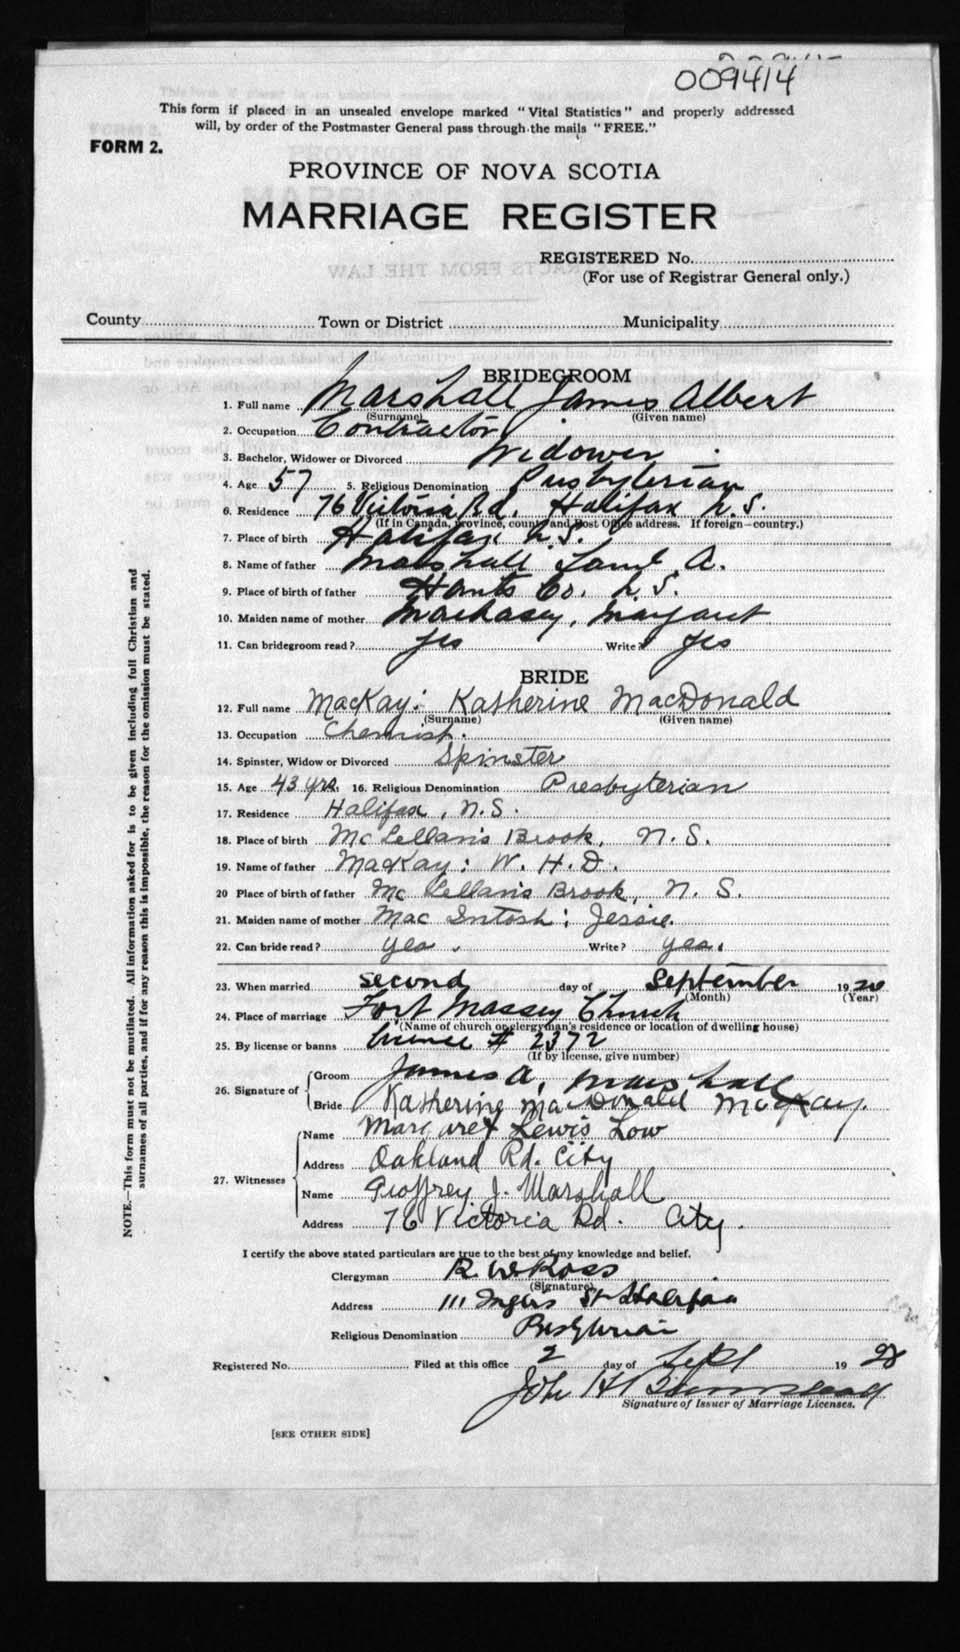 009414
This form if placed in an unsealed envelope marked "Vital Statistics" and properly addressed
will, by order of the Postmaster General pass through the mails "FREE."
FORM 2.
PROVINCE OF NOVA SCOTIA
MARRIAGE REGISTER
REGISTERED No.
(For use of Registrar General only.)
County Town or District Municipality
BRIDEGROOM
1. Full name Marshall James Albert
(Surname) (Given name)
2. Occupation Contractor
3. Bachelor, Widower or Divorced Widower
4. Age 57 5. Religious Denomination Presbyterian
6. Residence 76 Victoria Rd. Halifax N.S.
(If in Canada, province, county and Post Office address. If foreign—country.)
7. Place of birth Halifax N.S.
8. Name of father Marshall A.
9. Place of birth of father Hants Co. N.S.
10. Maiden name of mother Margaret
11. Can bridegroom read? Yes Write? Yes
BRIDE
12. Full name MacKay: Katherine MacDonald
(Surname) (Given name)
13. Occupation Chemist.
14. Spinster, Widow or Divorced Spinster
15. Age 43 yrs. 16. Religious Denomination Presbyterian
17. Residence Halifax, N.S.
18. Place of birth McLellan's Brook, N.S.
19. Name of father MacKay: W. H. D.
20 Place of birth of father McLellan's Brook, N. S.
21. Maiden name of mother MacIntosh: Jessie.
22. Can bride read? yes. Write? yes.
23. When married second day of September 19
(Month) (Year)
24. Place of marriage Fort Massey Church
(Name of church or clergyman's residence or location of dwelling house)
25. By license or banns license # 2372
(If by license, give number)
26. Signature of Groom James A. Marshall
Bride Katherine MacDonald McKay.
27. Witnesses Name Margaret Lewis Low
Address Oakland Rd. City
Name Geoffrey J. Marshall
Address 76 Victoria Rd. City.
I certify the above stated particulars are true to the best of my knowledge and belief.
Clergyman R. W. Ross
(Signature)
Address 111 Inglis St Halifax
Religious Denomination Presbyterian
Registered No. Filed at this office 2 day of Sept 19 28
John H
Signature of Issuer of Marriage Licenses.
[SEE OTHER SIDE]
NOTE.—This form must not be mutilated. All information asked for is to be given including full Christian and
surnames of all parties, and if for any reason this is impossible, the reason for the omission must be stated.